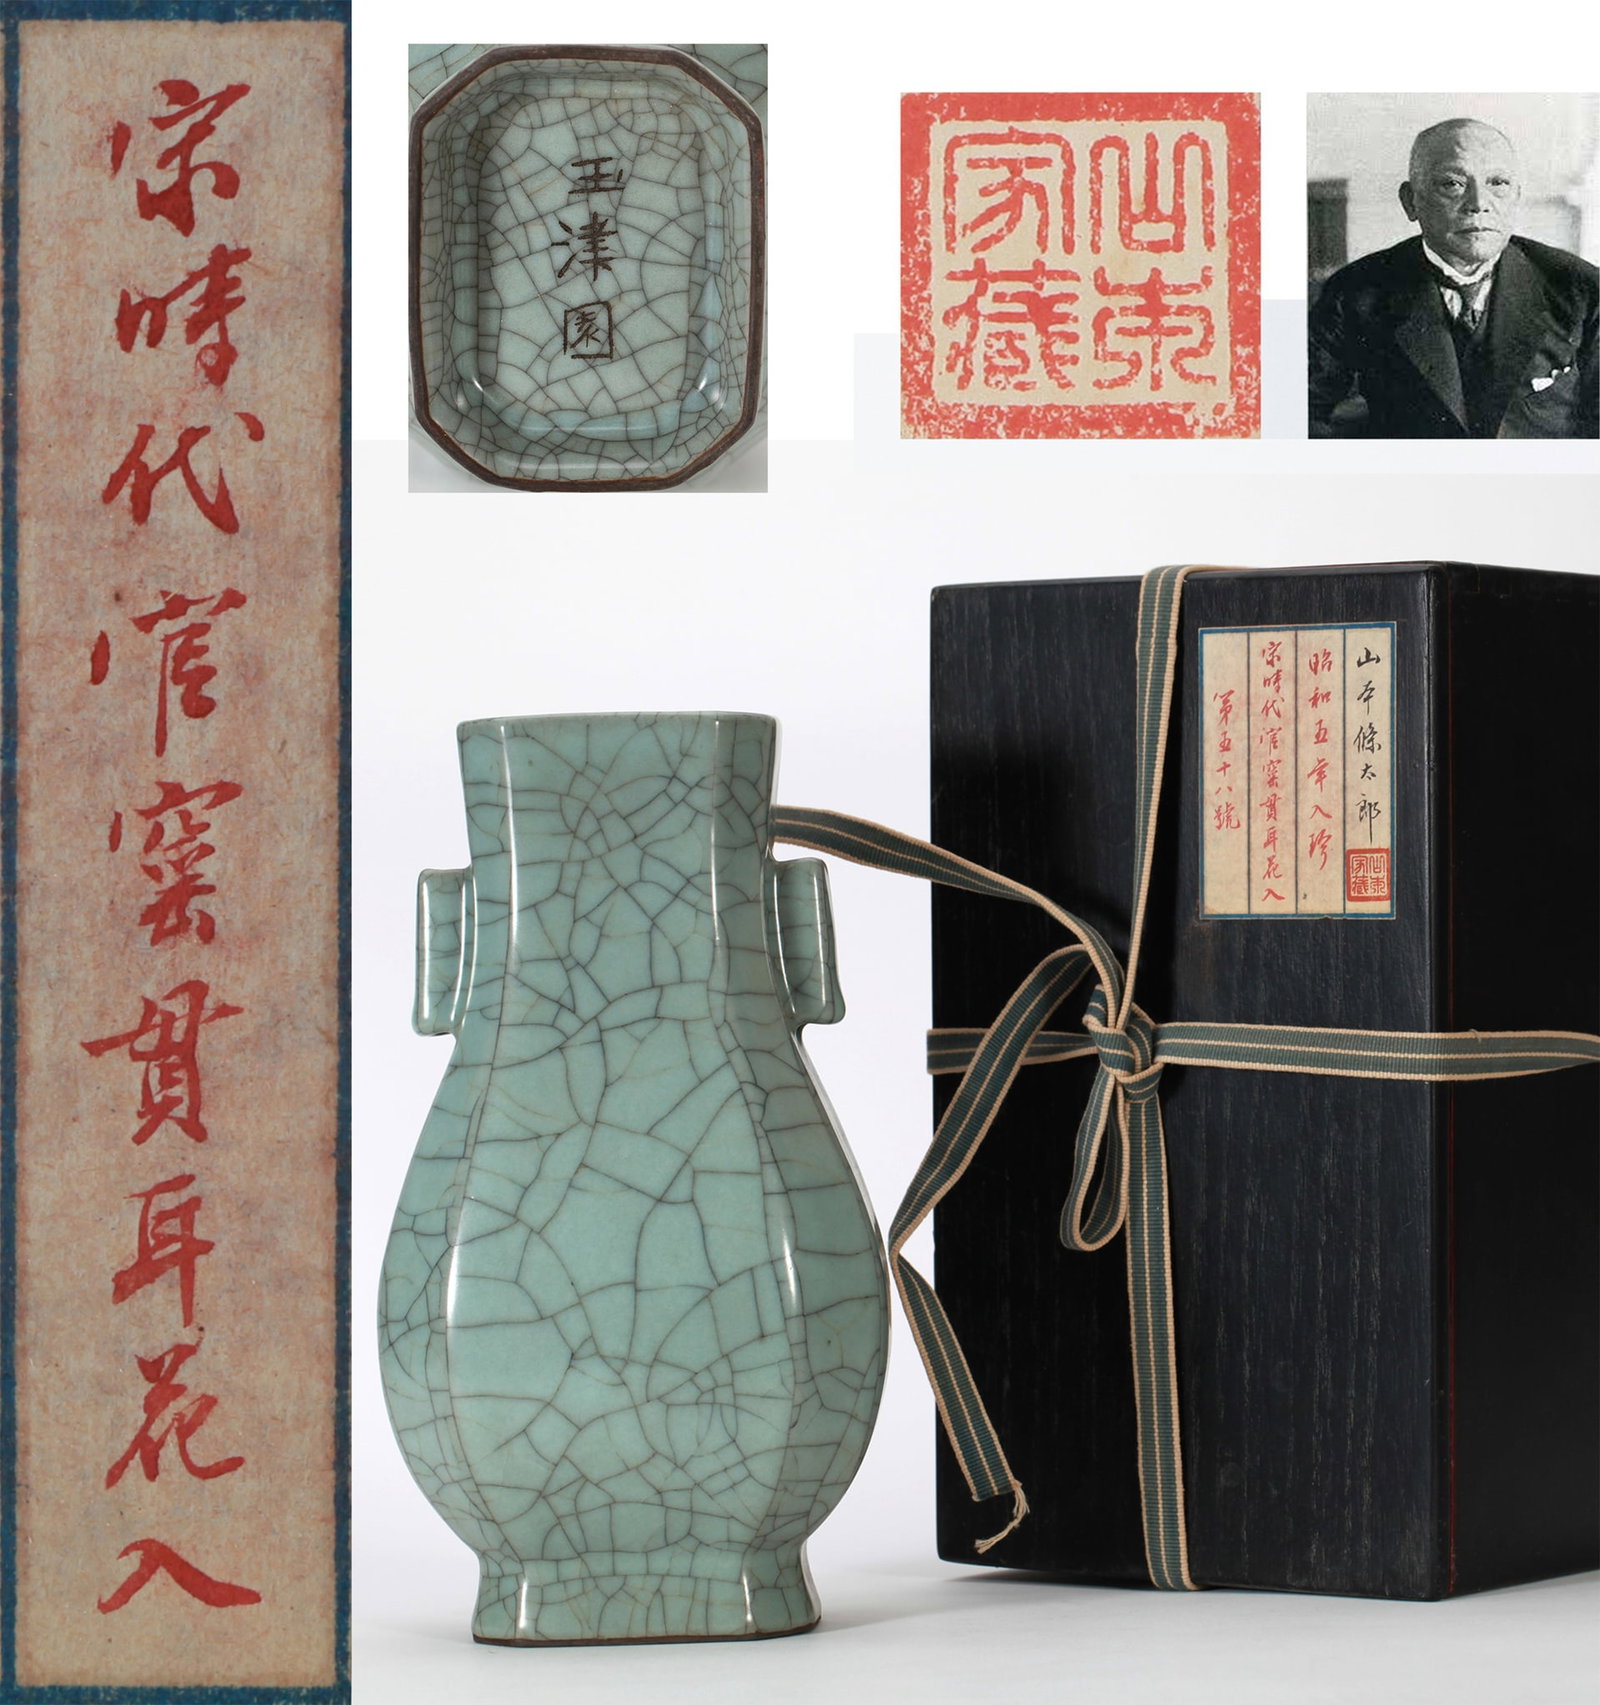 宋時代官窯貫耳花入
玉津園
山本家藏
山本條太郎
昭和五年入珍
宋時代官窯貫耳花入
第五十八號
山本家藏